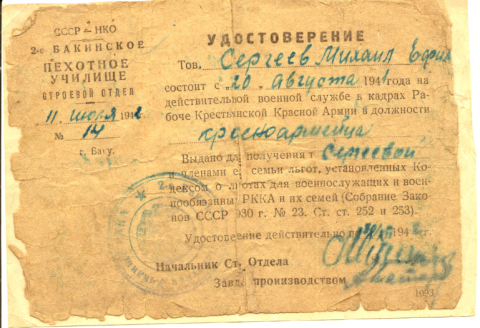 СССР — НКО
2-ое БАКИНСКОЕ
ПЕХОТНОЕ
УЧИЛИЩЕ
СТРОЕВОЙ ОТДЕЛ
11 июля 1942
№ 14
г. Баку.
УДОСТОВЕРЕНИЕ
Тов. Сергеев Михаил
состоит с „20„ августа 1941 года на
действительной военной службе в кадрах Ра-
боче Крестьянской Красной Армии в должности
красноармейца
Выдано для получения Сергеевой
и членами е семьи льгот, установленных Ко-
дексом о льготах для военнослужащих и воен-
нообязанны РККА и их семей (Собрание Зако-
нов СССР 930 г. № 23. Ст. ст. 252 и 253).
Удостоверение действительно по 194 г.
Начальник Ст. Отдела
Зав. производством